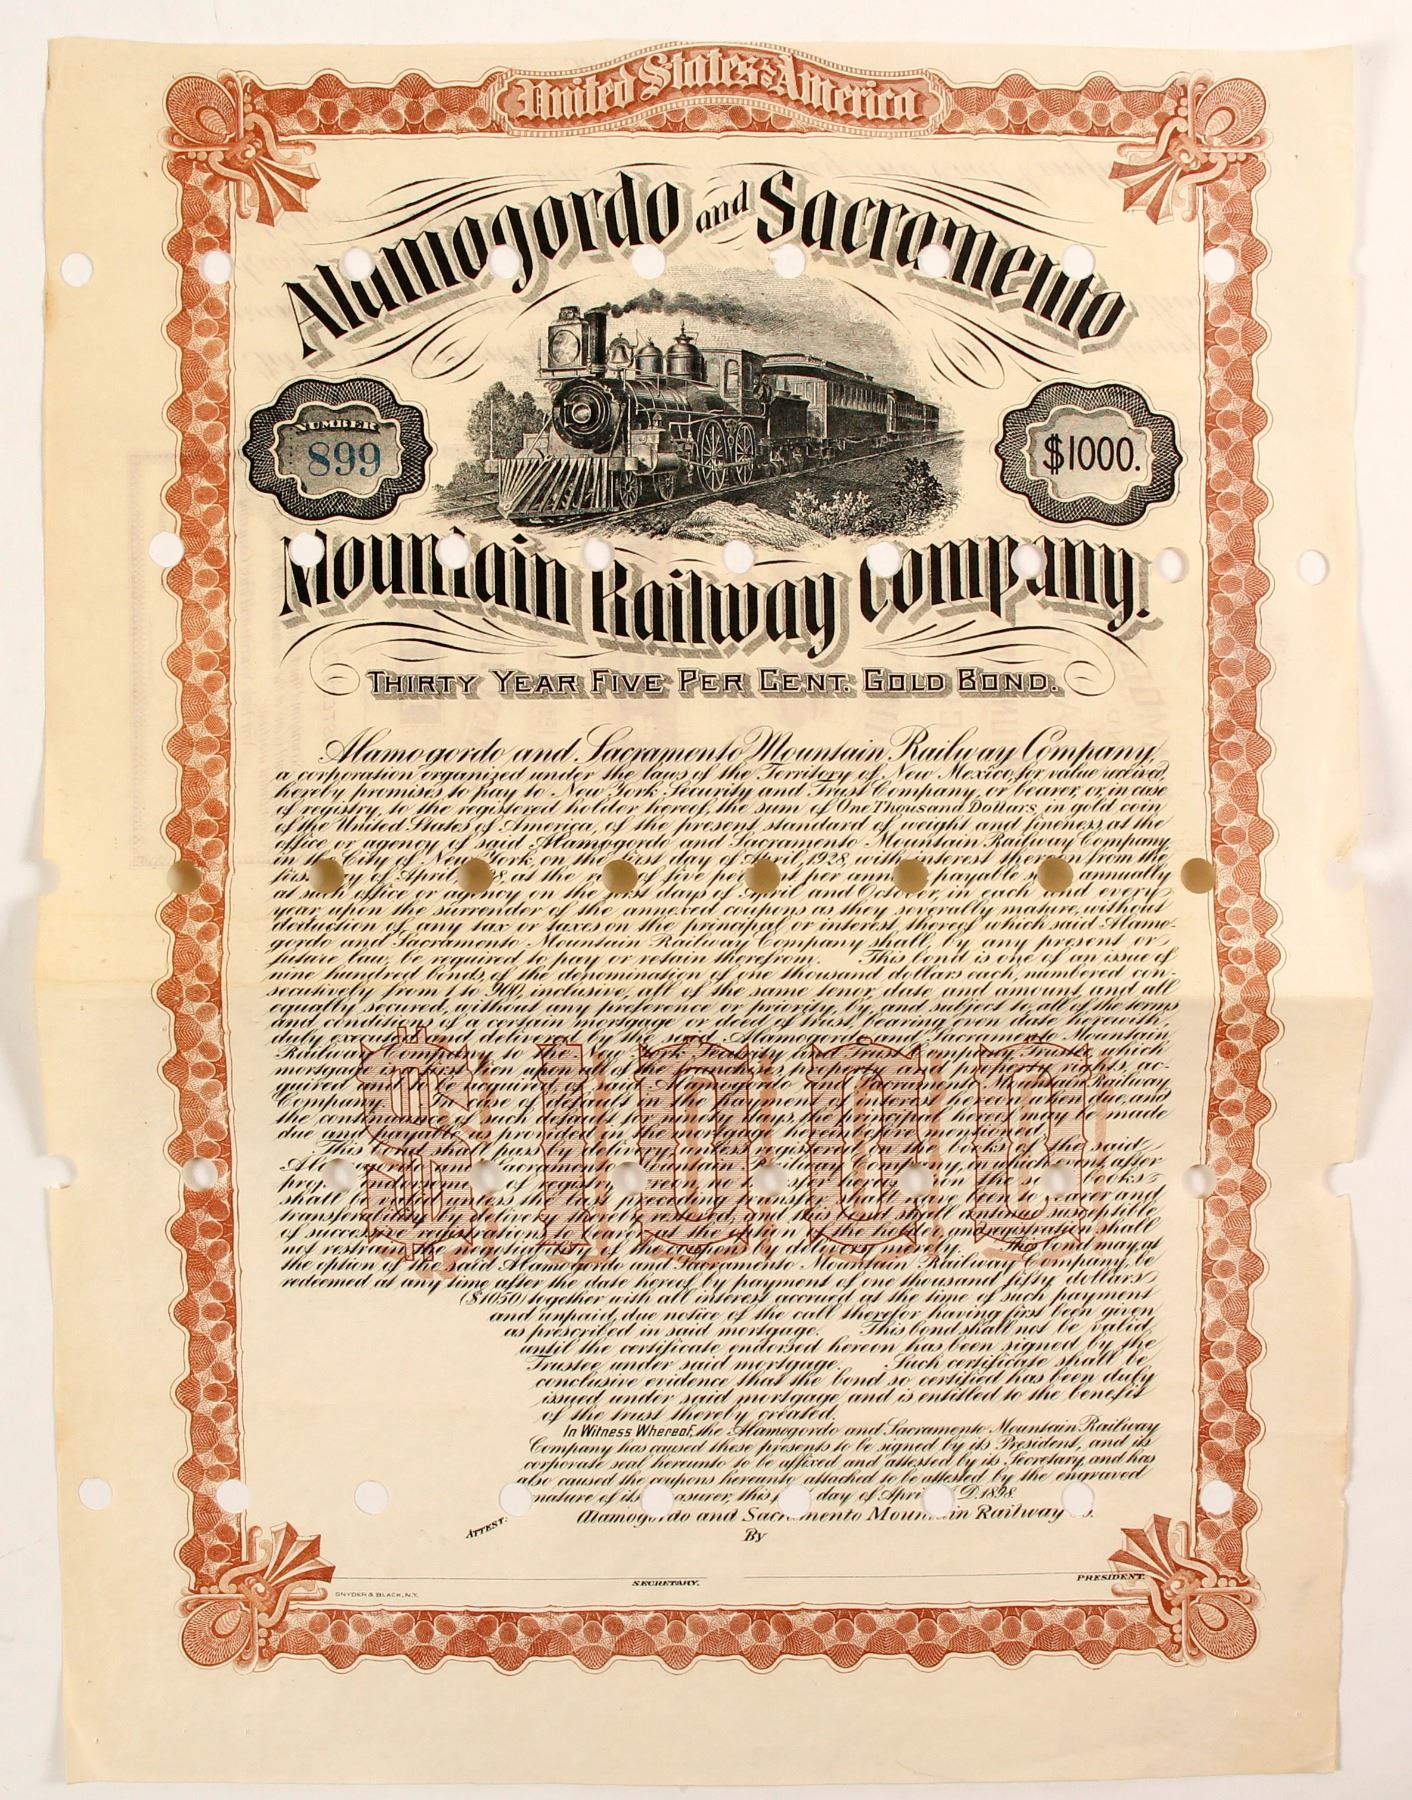 United States of America
Alamogordo and Sacramento
NUMBER
899
$1000.
Mountain Railway Company.
THIRTY YEAR FIVE PER CENT. GOLD BOND.
Alamogordo and Sacramento Mountain Railway Company,
a corporation organized under the laws of the Territory of New Mexico, for value received,
hereby promises to pay to New York Security and Trust Company, or bearer, or, in case
of registry, to the registered holder hereof, the sum of One Thousand Dollars, in gold coin
of the United States of America, of the present standard of weight and fineness, at the
office or agency of said Alamogordo and Sacramento Mountain Railway Company,
in the City of New York, on the first day of April, 1928, with interest thereon from the
first day of April, at the of five per per annum payable annually
at such office or agency on the first days of April and October, in each and every
year upon the surrender of the annexed coupons as they severally mature, without
deduction of any tax or taxes on the principal or interest thereof which said Alamo-
gordo and Sacramento Mountain Railway Company shall, by any present or
future law, be required to pay or retain therefrom. This bond is one of an issue of
nine hundred bonds, of the denomination of one thousand dollars each, numbered con-
secutively from 1 to 900, inclusive, all of the same tenor, date and amount, and all
equally secured, without any preference or priority, by and subject to, all of the terms
and conditions of a certain mortgage or deed of trust, bearing even date herewith,
duly executed and delivered by the said Alamogordo and Sacramento Mountain
Railway Company to the New York Security and Trust Company, Trustee, which
mortgage is a first lien upon all of the franchises, property and property rights, ac-
quired and to be acquired, of said Alamogordo and Sacramento Mountain Railway
Company. In case of default in the payment of interest hereon when due, and
the continuance of such default for ninety days, the principal hereof may be made
due and payable as provided in the mortgage hereinbefore mentioned.
This bond shall pass by delivery, unless registered on the books of the said
and Sacramento Mountain Railway Company, in which event, after
of registry hereon, no transfer hereof upon the books
shall be valid unless the last preceding transfer shall have been to bearer and
transferability by delivery thereby restored, and this bond shall continue susceptible
of successive registrations to bearer at the option of the holder, and registration shall
not restrain the negotiability of the coupons by delivery merely. This bond may, at
the option of the said Alamogordo and Sacramento Mountain Railway Company, be
redeemed at any time after the date hereof, by payment of one thousand fifty dollars
($1050) together with all interest accrued at the time of such payment
and unpaid, due notice of the call therefor having first been given
as prescribed in said mortgage. This bond shall not be valid
until the certificate endorsed hereon has been signed by the
Trustee under said mortgage. Such certificate shall be
conclusive evidence that the bond so certified has been duly
issued under said mortgage and is entitled to the benefit
of the trust thereby created.
In Witness Whereof, the Alamogordo and Sacramento Mountain Railway
Company has caused these presents to be signed by its President, and its
corporate seal hereunto to be affixed and attested by its Secretary, and has
also caused the coupons hereunto attached to be attested by the engraved
signature of its Treasurer, this day of April A.D. 1898.
Alamogordo and Sacramento Mountain Railway Co.
ATTEST:
By
SECRETARY.
PRESIDENT.
SNYDER & BLACK, N.Y.
$1000